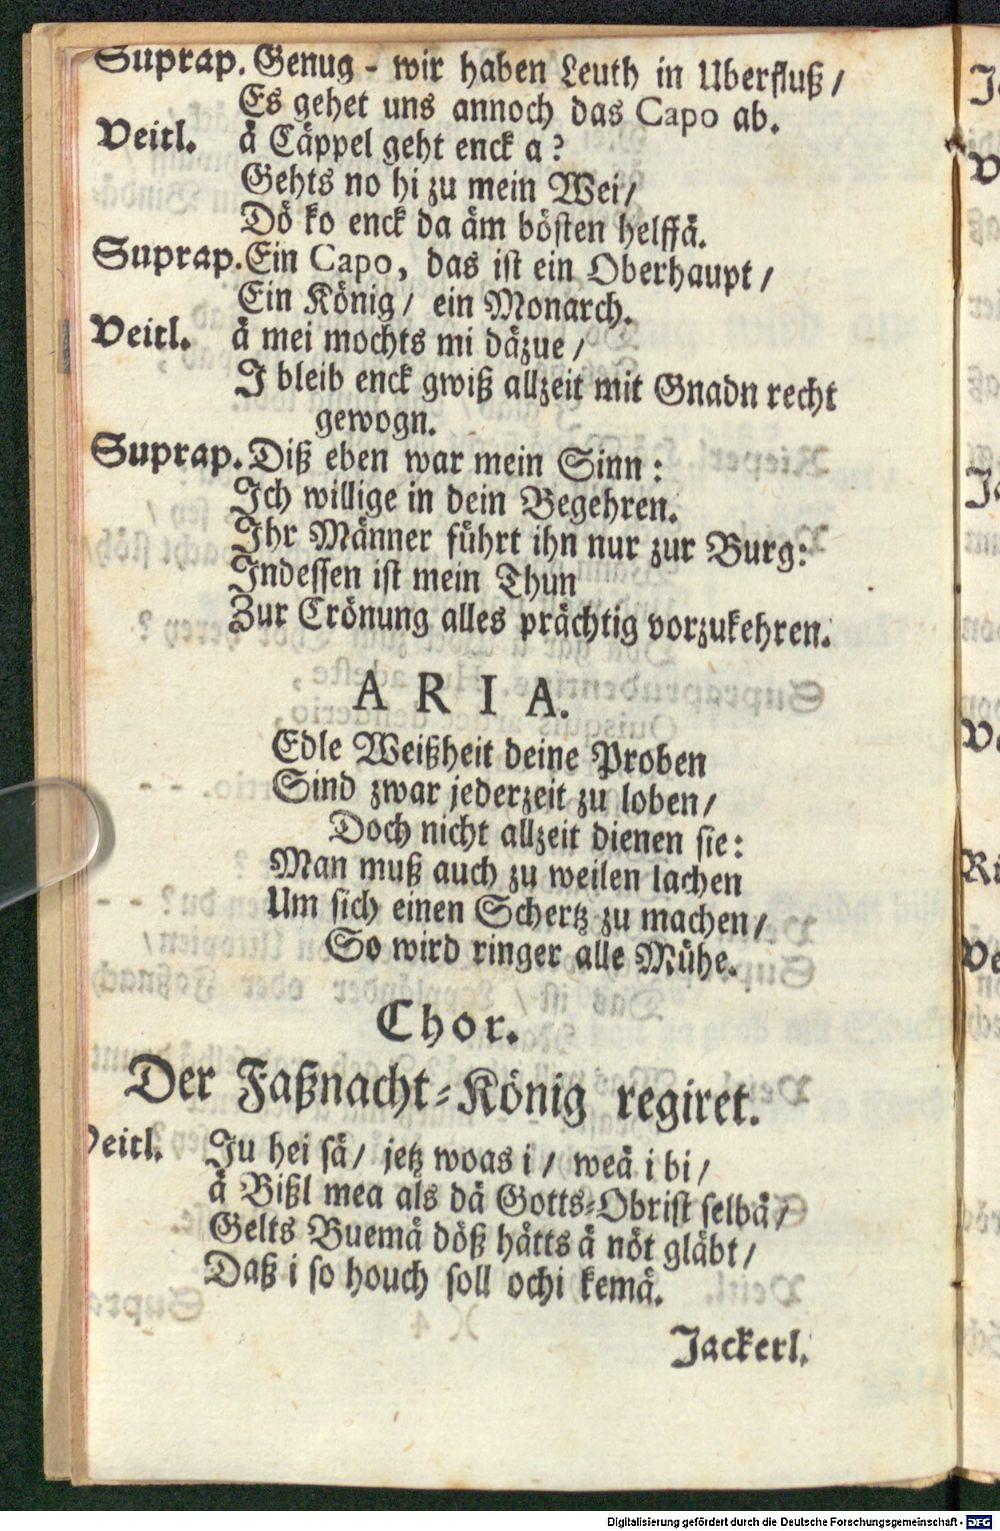 Suprap. Genug - wir haben Leuth in Uberfluß /
Es gehet uns annoch das Capo ab.
Veitl. ä Cäppel geht enck a?
Gehts no hi zu mein Wei /
Dö ko enck da äm bösten helffä.
Suprap. Ein Capo, das ist ein Oberhaupt /
Ein König / ein Monarch.
Veitl. ä mei mochts mi däzue /
I bleib enck gwiß allzeit mit Gnadn recht
gewogn.
Suprap. Diß eben war mein Sinn:
Ich willige in dein Begehren.
Ihr Männer führt ihn nur zur Burg:
Indessen ist mein Thun
Zur Crönung alles prächtig vorzukehren.
ARIA.
Edle Weißheit deine Proben
Sind zwar jederzeit zu loben /
Doch nicht allzeit dienen sie:
Man muß auch zu weilen lachen
Um sich einen Schertz zu machen /
So wird ringer alle Mühe.
Chor.
Der Faßnacht-König regiret.
Veitl. Ju hei sä / jetz woas i / weä i bi /
ä Bißl mea als dä Gotts-Obrist selbä /
Gelts Buemä döß hätts ä nöt gläbt /
Daß i so houch soll ochi kemä.
Jackerl.
Digitalisierung gefördert durch die Deutsche Forschungsgemeinschaft - DFG